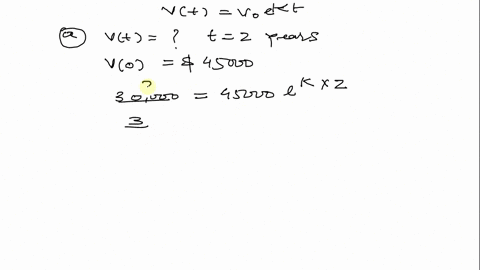 V(t) = V₀ eKt
(a) V(t) = ? t = 2 years
V(0) = $ 45000
30,000 = 45000 e^K × 2
3